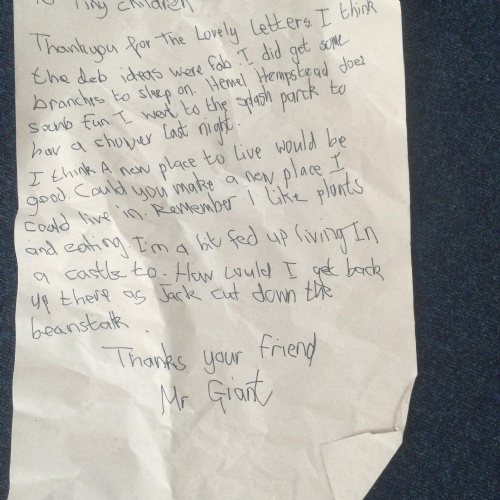 To Tiny children
Thankyou for The Lovely Letters. I think
the deb ideas were fab. I did get some
branches to sleep on. Hemel Hempstead does
sound fun. I went to the splash parck to
hav a shower Last night.
I think A new place to live would be
good. Could you make a new place I
could live in. Remember I like plants
and eating. I'm a bit fed up living In
a castle to. How would I get back
up there as Jack cut down the
beanstalk.
Thanks your friend
Mr Giant